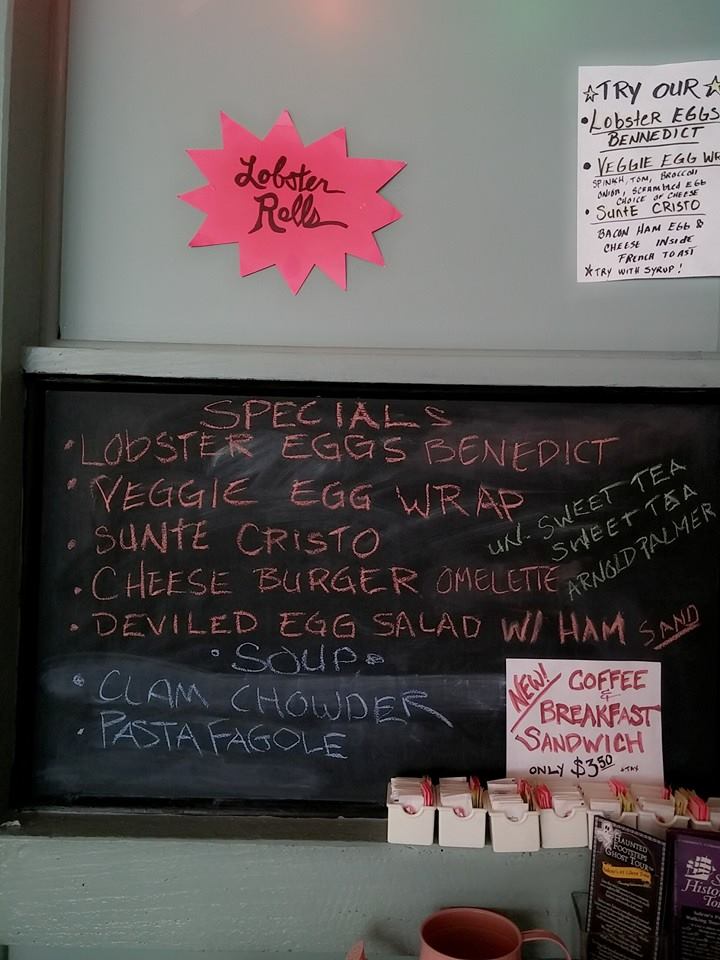 Lobster
Rolls
☆TRY OUR☆
• Lobster EGGS
BENNEDICT
• VEGGIE EGG WR
SPINKH, TOM, BROCCOLI
ONION, SCRAMBLED EGG
CHOICE OF CHEESE
• SUNTE CRISTO
BACON HAM EGG &
CHEESE INSIDE
FRENCH TOAST
☆TRY WITH SYRUP!
SPECIALS
• LOBSTER EGGS BENEDICT
• VEGGIE EGG WRAP
• SUNTE CRISTO
• CHEESE BURGER OMELETTE
• DEVILED EGG SALAD W/ HAM SAND
UN-SWEET TEA
SWEET TEA
ARNOLD PALMER
• SOUP •
• CLAM CHOWDER
• PASTA FAGOLE
NEW! COFFEE
&
BREAKFAST
SANDWICH
ONLY $3.50 +TAX
HAUNTED
FOOTSTEPS
GHOST TOUR